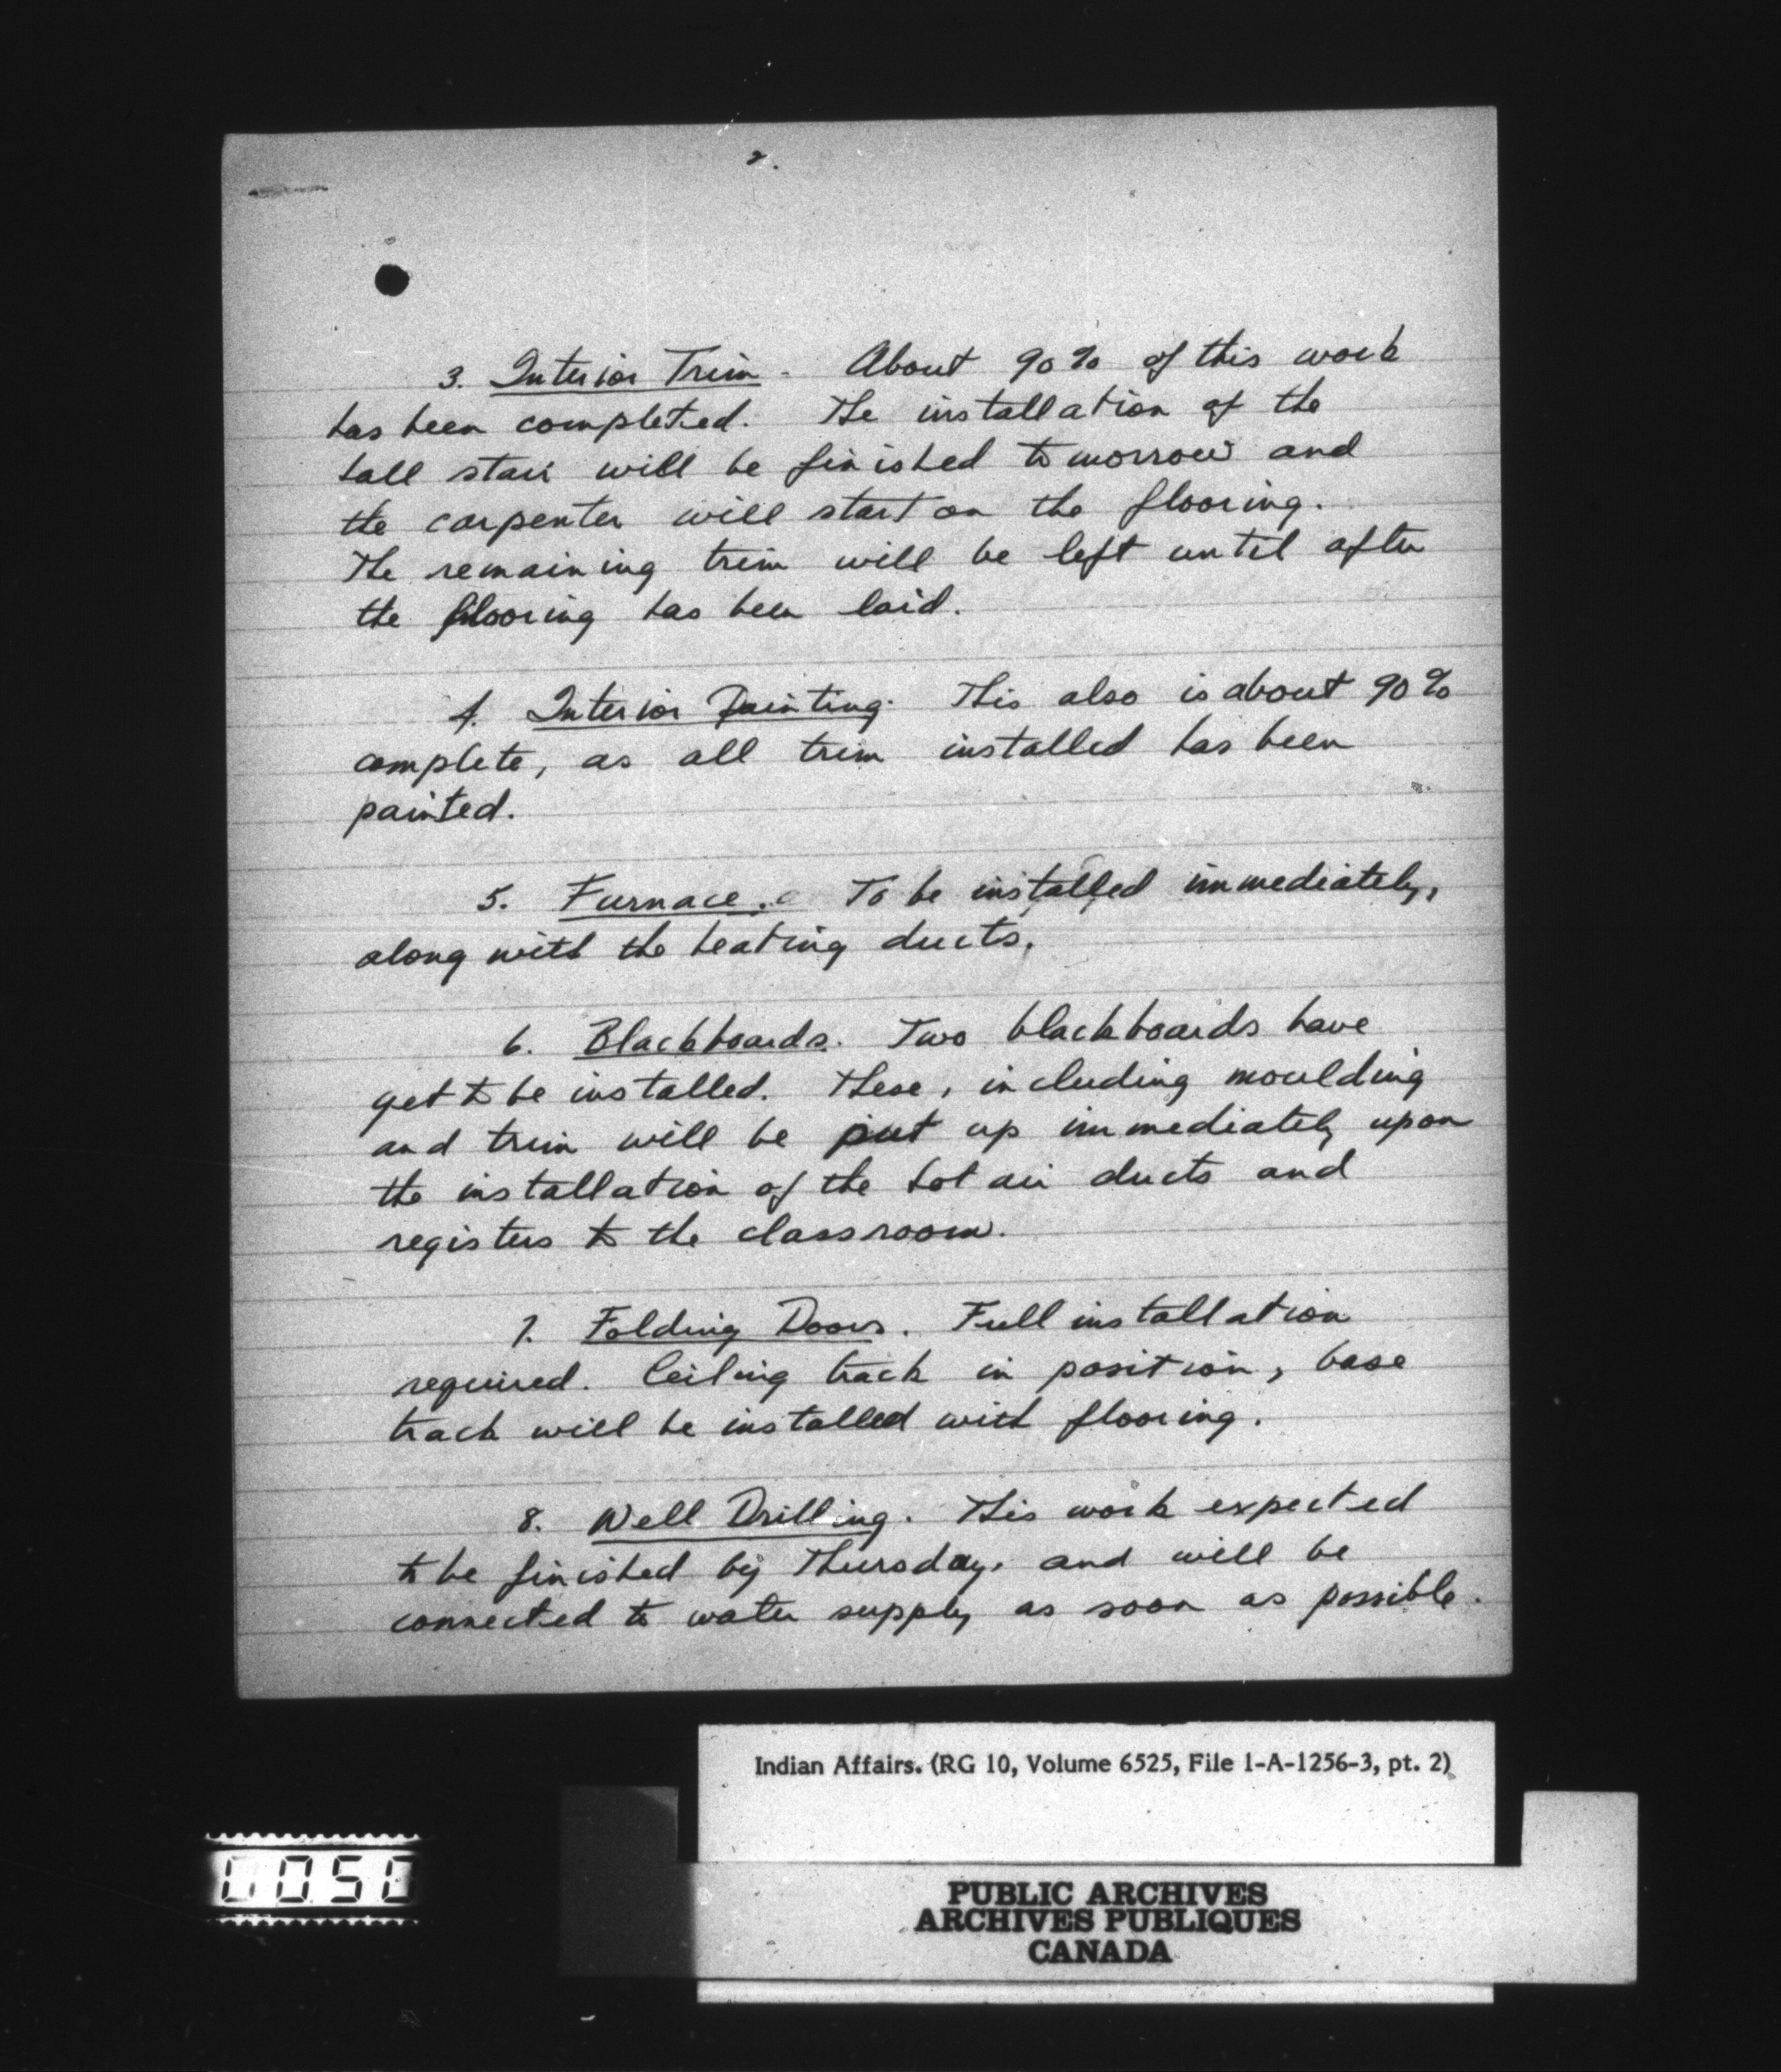 2.
3. Interior Trim - About 90% of this work
has been completed. The installation of the
hall stair will be finished tomorrow and
the carpenter will start on the flooring.
The remaining trim will be left until after
the flooring has been laid.
4. Interior Painting. This also is about 90%
complete, as all trim installed has been
painted.
5. Furnace. To be installed immediately,
along with the heating ducts.
6. Blackboards. Two blackboards have
yet to be installed. These, including moulding
and trim will be put up immediately upon
the installation of the hot air ducts and
registers to the classroom.
7. Folding Doors. Full installation
required. Ceiling track in position, base
track will be installed with flooring.
8. Well Drilling. This work expected
to be finished by Thursday, and will be
connected to water supply as soon as possible.
Indian Affairs. (RG 10, Volume 6525, File 1-A-1256-3, pt. 2)
0050
PUBLIC ARCHIVES
ARCHIVES PUBLIQUES
CANADA